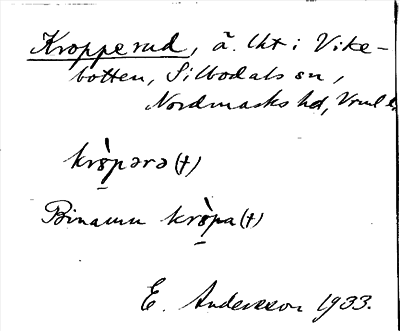 Kropperud, ä. lht i Vike-
botten, Silbodals sn,
Nordmarks hd, Vrml l.
krò̱pərə (†)
Binamn krò̱pa (†)
E. Andersson 1933.